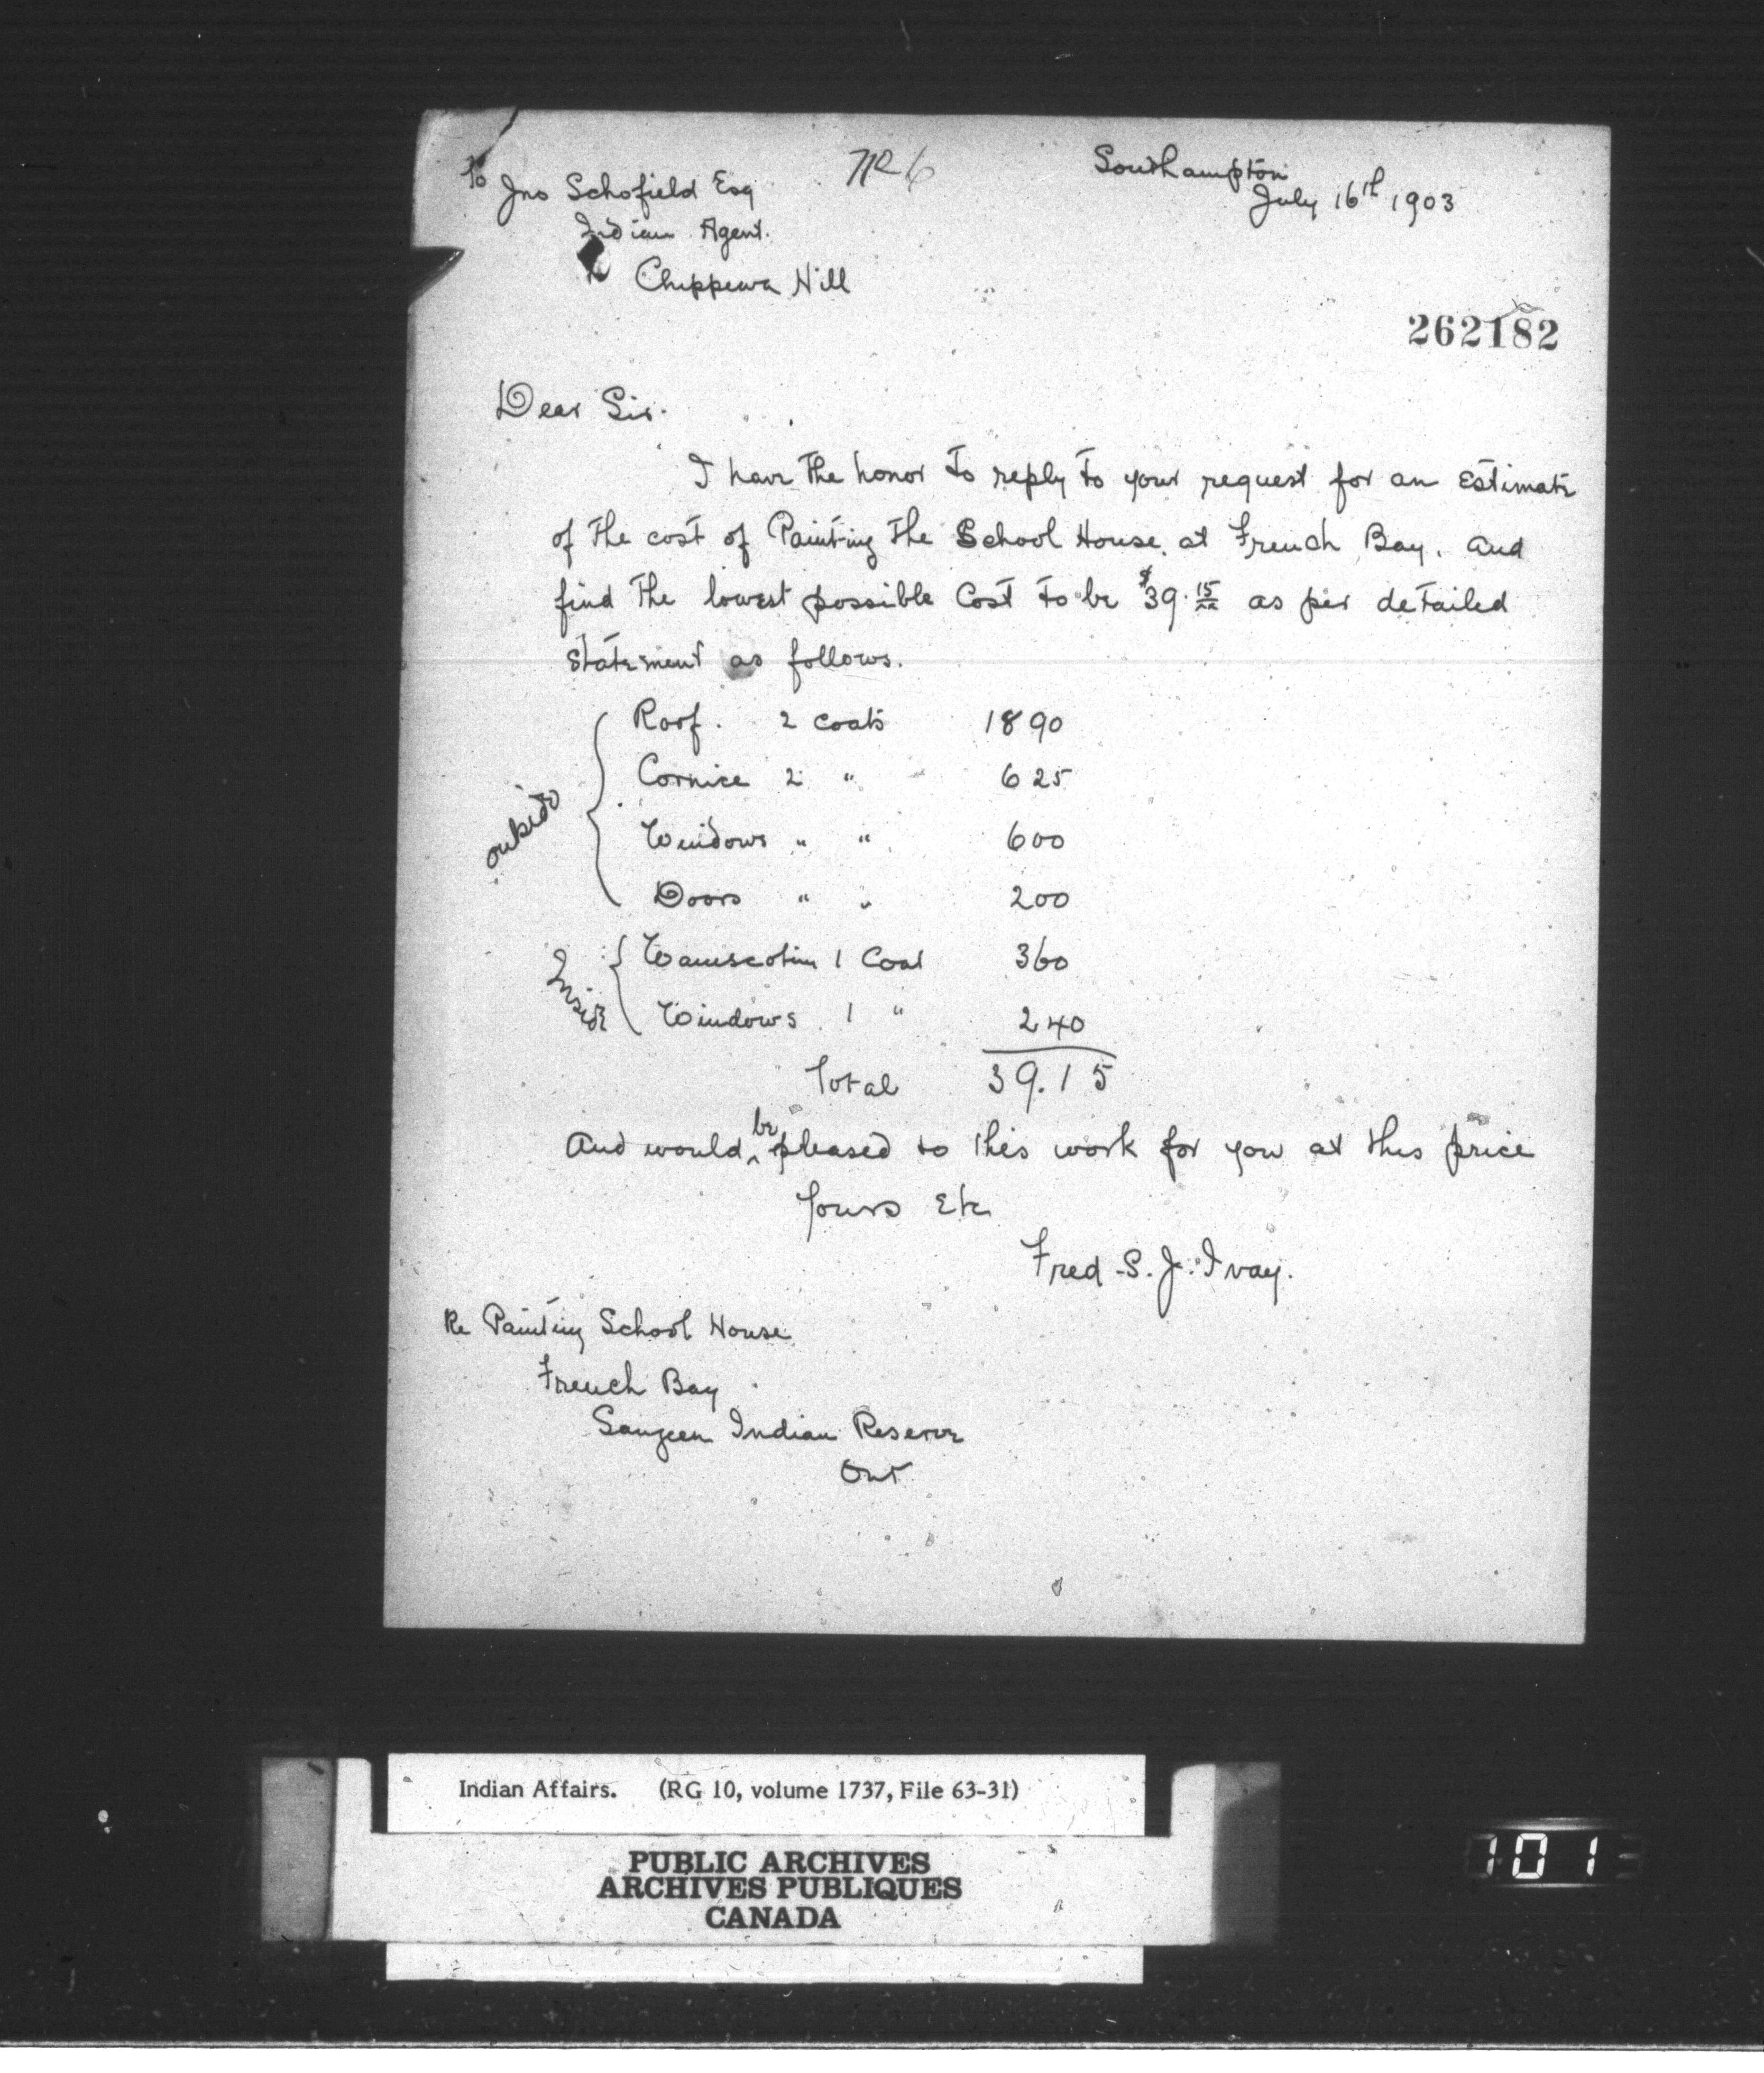 To Jno Schofield Esq
Indian Agent.
Chippewa Hill
No 6
Southampton
July 16th 1903
262182
Dear Sir.
I have the honor to reply to your request for an Estimate
of the cost of Painting the School House at French Bay. and
find the lowest possible Cost to be $39.15 as per detailed
statement as follows.
outside
Roof. 2 coats 1890
Cornice 2 " 625
Windows " " 600
Doors " " 200
Inside
Wainscotin 1 Coat 360
Windows 1 " 240
Total 39.15
And would be pleased to this work for you at this price
Yours Etc
Fred S. J. Ivay.
Re Painting School House
French Bay
Saugeen Indian Reserve
Ont
Indian Affairs. (RG 10, volume 1737, File 63-31)
PUBLIC ARCHIVES
ARCHIVES PUBLIQUES
CANADA
101